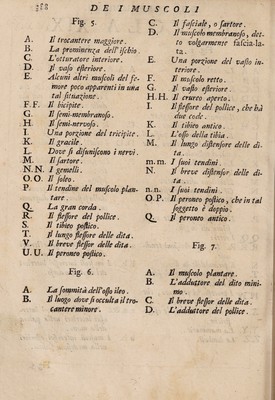 388
DE I MUSCOLI
Fig. 5.
A. Il trocantere maggiore.
B. La prominenza dell'ischio.
C. L'otturatore interiore.
D. Il vasto esteriore.
E. Alcuni altri muscoli del fe-
more poco apparenti in una
tal situazione.
F.F. Il bicipite.
G. Il semi-membranoso.
H. Il semi-nervoso.
I. Una porzione del tricipite.
K. Il gracile.
L. Dove si disuniscono i nervi.
M. Il sartore.
N.N. I gemelli.
O.O. Il soleo.
P. Il tendine del muscolo plan-
tare.
Q. La gran corda.
R. Il flessore del pollice.
S. Il tibieo postico.
T. Il lungo flessore delle dita.
V. Il breve flessor delle dita.
U.U. Il peroneo postico.
Fig. 6.
A. La sommità dell'osso ileo.
B. Il luogo dove si occulta il tro-
cantere minore.
C. Il fasciale, o sartore.
D. Il muscolo membranoso, det-
to volgarmente fascia-la-
ta.
E. Una porzione del vasto in-
teriore.
F. Il muscolo retto.
G. Il vasto esteriore.
H.H. Il crureo aperto.
I. Il flessore del pollice, che hà
due code.
K. Il tibieo antico.
L. L'osso della tibia.
M. Il lungo distensore delle di-
ta.
m.m. I suoi tendini.
N. Il breve distensor delle di-
ta.
n.n. I suoi tendini.
O.P. Il peroneo postico, che in tal
soggetto è doppio.
Q. Il peroneo antico.
Fig. 7.
A. Il muscolo plantare.
B. L'adduttore del dito mini-
mo.
C. Il breve flessor delle dita.
D. L'adduttore del pollice.